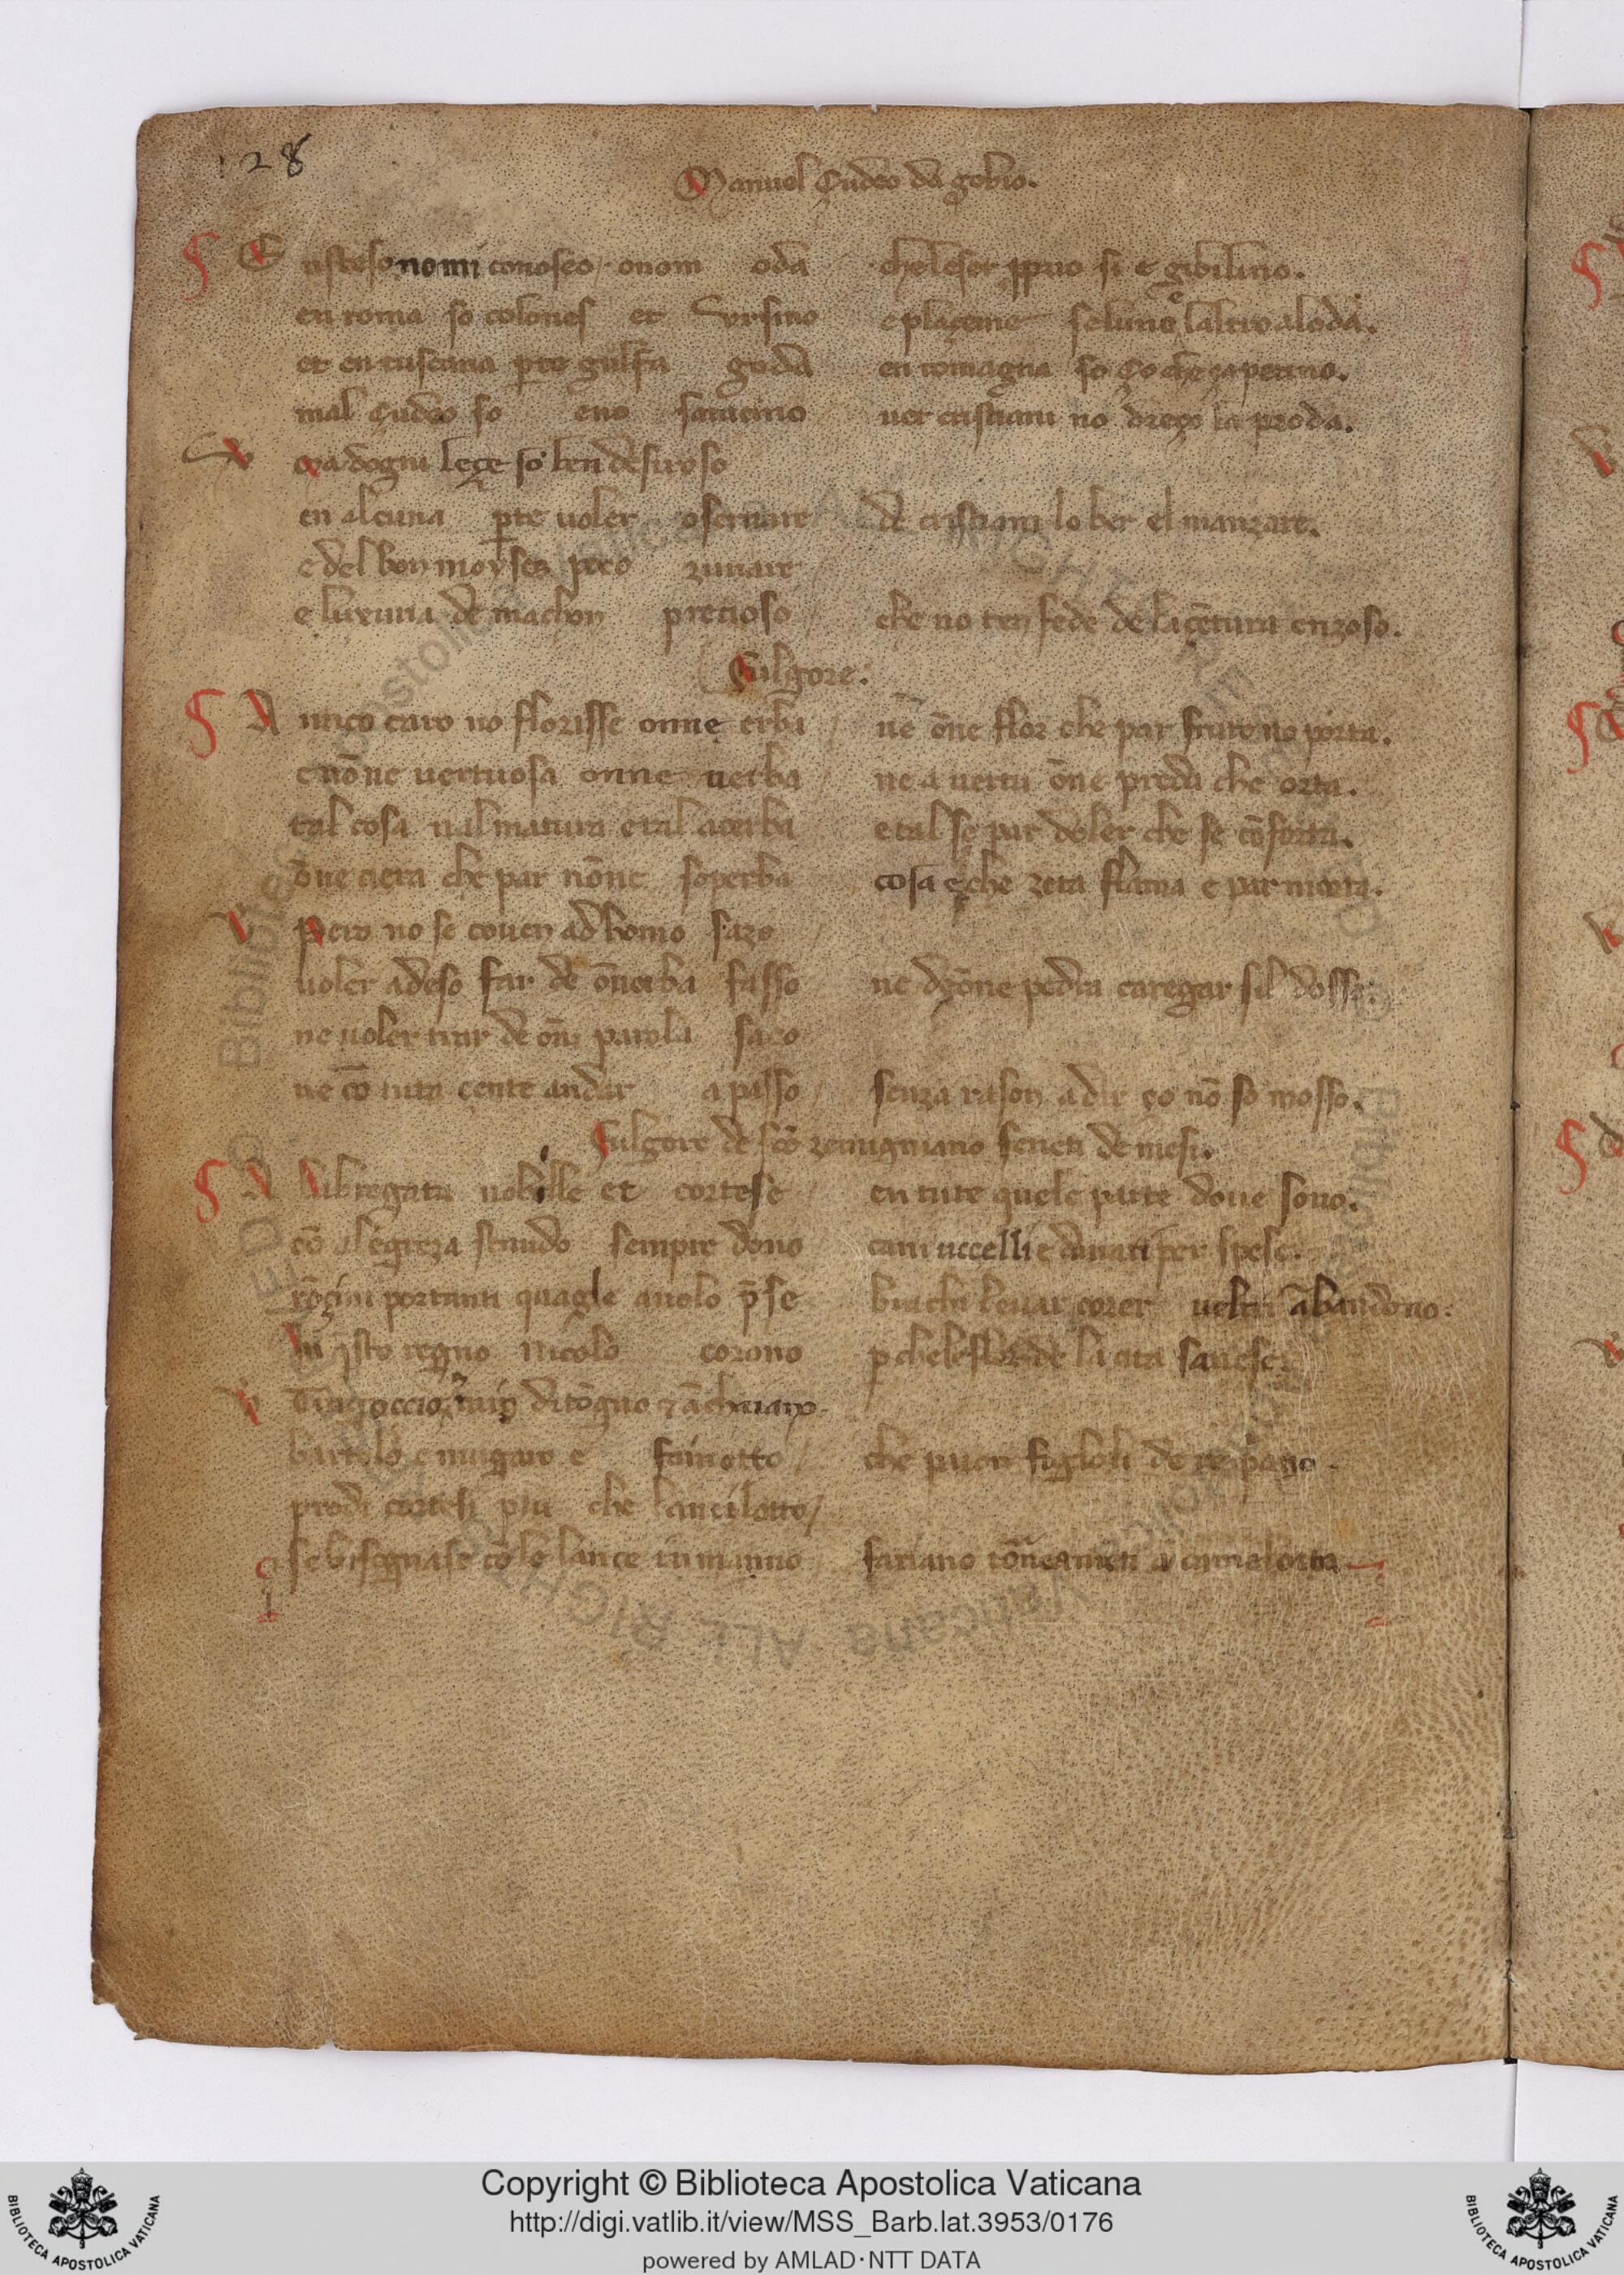 128
Manuel çudeo da gobio.
E nsteso nomi conosco. onom oda chelesor ppuo si e gibilino.
en roma so colones et Vrsino e placeme se luno e laltro a loda.
et en tuscana pte guilfa goda en romagna so ço che zapetino.
mal çudeo so eno saracino uer cristiani nō dreço la proda.
ma dogni leçe so ben desiroso
en alcuna pte uoler oseruare de cristiani lo ber el manzare.
e del bon moyses poco zunare
e luxuria de machon precioso che no ten fede de la çētura enzoso.
Fulgore:
A mico caro no florisse onne erba ne ōne flor che par fruto no porta.
e nōne uertuosa onne uerba ne a uertu ōne preda che orta.
tal cosa ual matura e tal acerba e tal se par doler che se cōforta.
ōne ciera che par nōne soperba cosa e che zeta flāma e par morta.
Pero no se couen ad homo sazo
uoler adeso far de ōnerba fasso ne dōne pedra caregar sil dosso.
ne uoler trar de ōni parola sazo
ne cō tuta çente andar a passo senza rason a dir ço nō so mosso.
Fulgore de scō zemignano soneti de mesi.
A la bregata nobille et cortese en tute quele parte doue sono.
cō alegreza stando sempre dono cani uccelli e dinari per spese.
rōçini portanti quagle auolo p̄se brachi leuar corer ueltri ābandono:
In qsto regno nicolo corono p chele flor de la cita sanese.
Tingoccio
bartolo e mugaro e fainotto che puon figloli de re pano.
prodi cortesi piu che lancilotto
se bisognase cō le lance in mano fariano tōneamēti a camelotto
Copyright © Biblioteca Apostolica Vaticana
http://digi.vatlib.it/view/MSS_Barb.lat.3953/0176
powered by AMLAD·NTT DATA
BIBLIOTECA APOSTOLICA VATICANA
BIBLIOTECA APOSTOLICA VATICANA